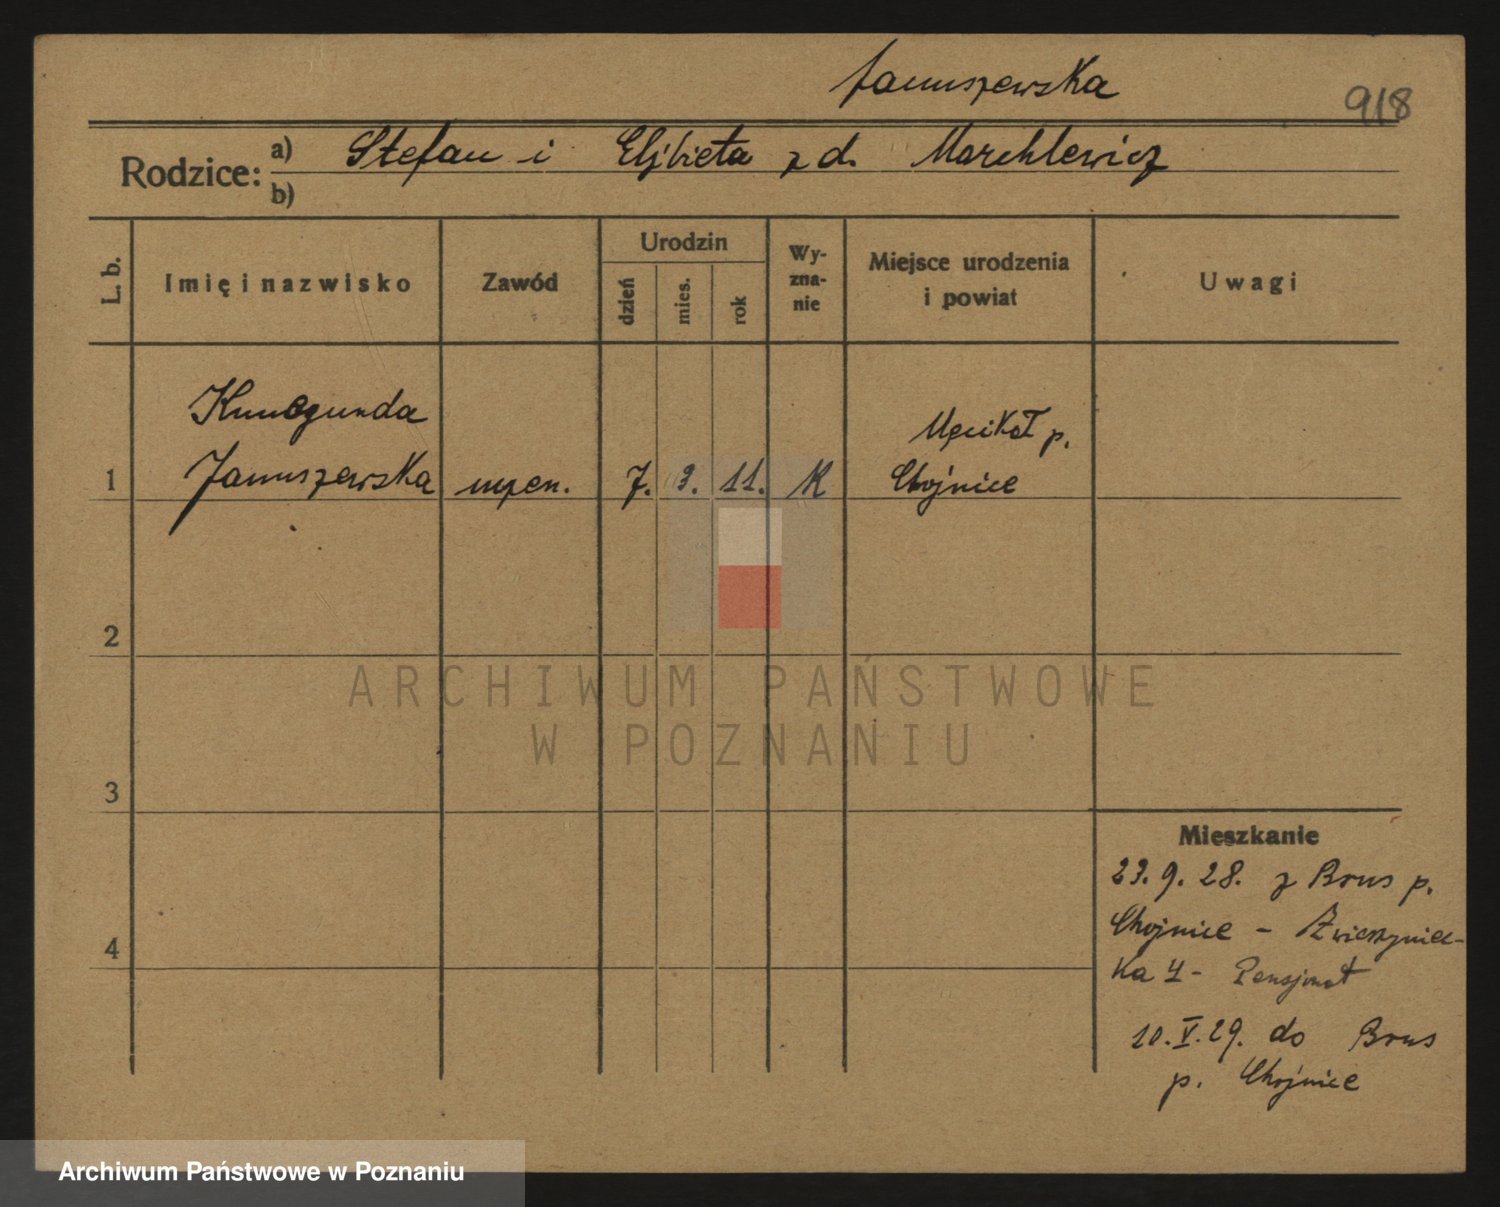 Januszewska
918
Rodzice: a) Stefan i Elżbieta z d. Marchlewicz
b)
L. b. Imię i nazwisko Zawód Urodzin dzień mies. rok Wy-zna-nie Miejsce urodzenia i powiat Uwagi
Kunegunda
Męcikał p.
1 Januszewska uczen. 7. 3. 11. K Chojnice
2
ARCHIWUM PAŃSTWOWE
W POZNANIU
3
Mieszkanie
23. 9. 28. z Brus p.
Chojnice - Zwierzyniec-
4
ka 4 - Pensjonat
10. V. 29. do Brus
p. Chojnice
Archiwum Państwowe w Poznaniu